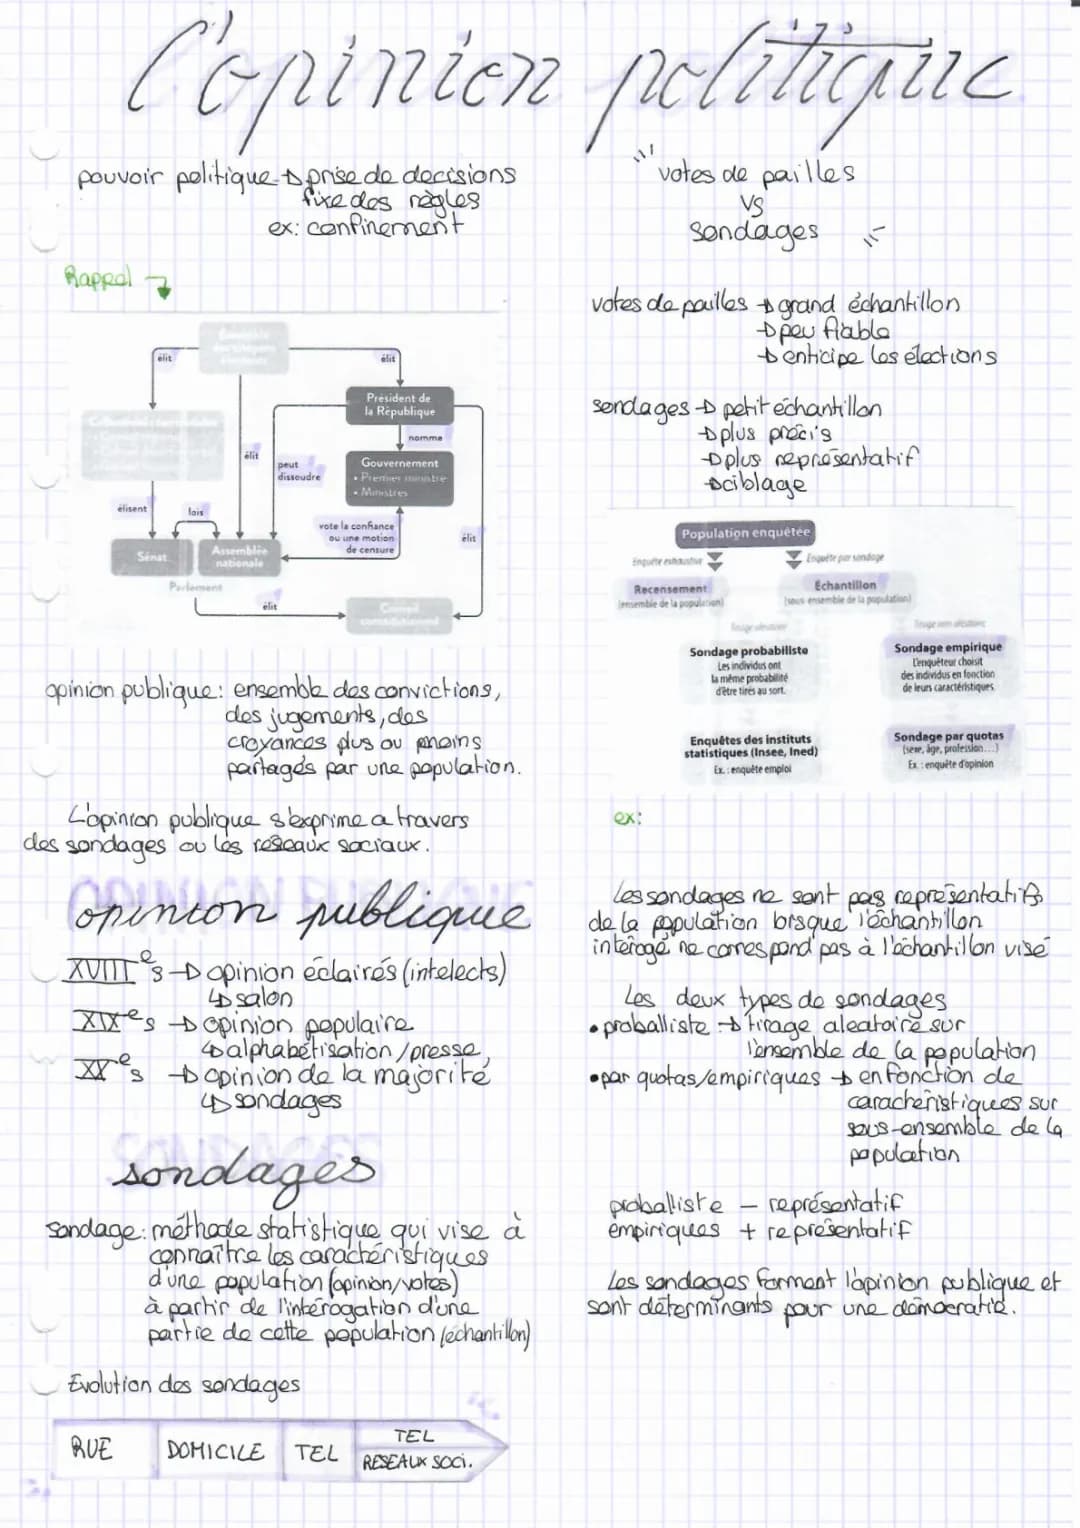 L'opinion politique
pouvoir politique → prise de decisions
fixe des règles
ex: confinement
Rappel
élit
élit
Président de
la République
nomme
élit
peut
dissoudre
Gouvernement
• Premier ministre
• Ministres
élisent
lois
vote la confiance
ou une motion
de censure
élit
Sénat
Assemblée
nationale
Parlement
élit
Conseil
constitutionnel
opinion publique: ensemble des convictions,
des jugements, des
croyances plus ou moins
partagés par une population.
L'opinion publique s'exprime a travers
des sondages ou les reseaux sociaux.
opinion publique
XVIIIe s → opinion éclairés (intelects)
↳ salon
XIXe s → opinion populaire
↳ alphabétisation / presse,
XXe s → opinion de la majorité
↳ sondages
sondages
sondage: méthode statistique qui vise à
connaître les caractéristiques
d'une population (opinion/votes)
à partir de l'intérogation d'une
partie de cette population (échantillon)
Evolution des sondages
RUE
DOMICILE
TEL
TEL
RESEAUX SOCI.
votes de pailles
VS
sondages
votes de pailles → grand échantillon
→ peu fiable
→ enticipe les élections
sondages → petit échantillon
→ plus précis
→ plus représentatif
→ ciblage
Population enquêtée
Enquête exhaustive
Enquête par sondage
Recensement
(ensemble de la population)
Échantillon
(sous-ensemble de la population)
Tirage aléatoire
Tirage non aléatoire
Sondage probabiliste
Les individus ont
la même probabilité
d'être tirés au sort.
Sondage empirique
L'enquêteur choisit
des individus en fonction
de leurs caractéristiques
Enquêtes des instituts
statistiques (Insee, Ined)
Ex. : enquête emploi
Sondage par quotas
(sexe, âge, profession...)
Ex. : enquête d'opinion
ex:
Les sondages ne sont pas représentatifs
de la population lorsque l'échantillon
intérogé ne correspond pas à l'échantillon visé
Les deux types de sondages
• proballiste → tirage aleatoire sur
l'ensemble de la population
• par quotas/empiriques → en fonction de
caractéristiques sur
sous-ensemble de la
population
proballiste – représentatif
empiriques + représentatif
Les sondages forment l'opinion publique et
sont déterminants pour une démocratie.